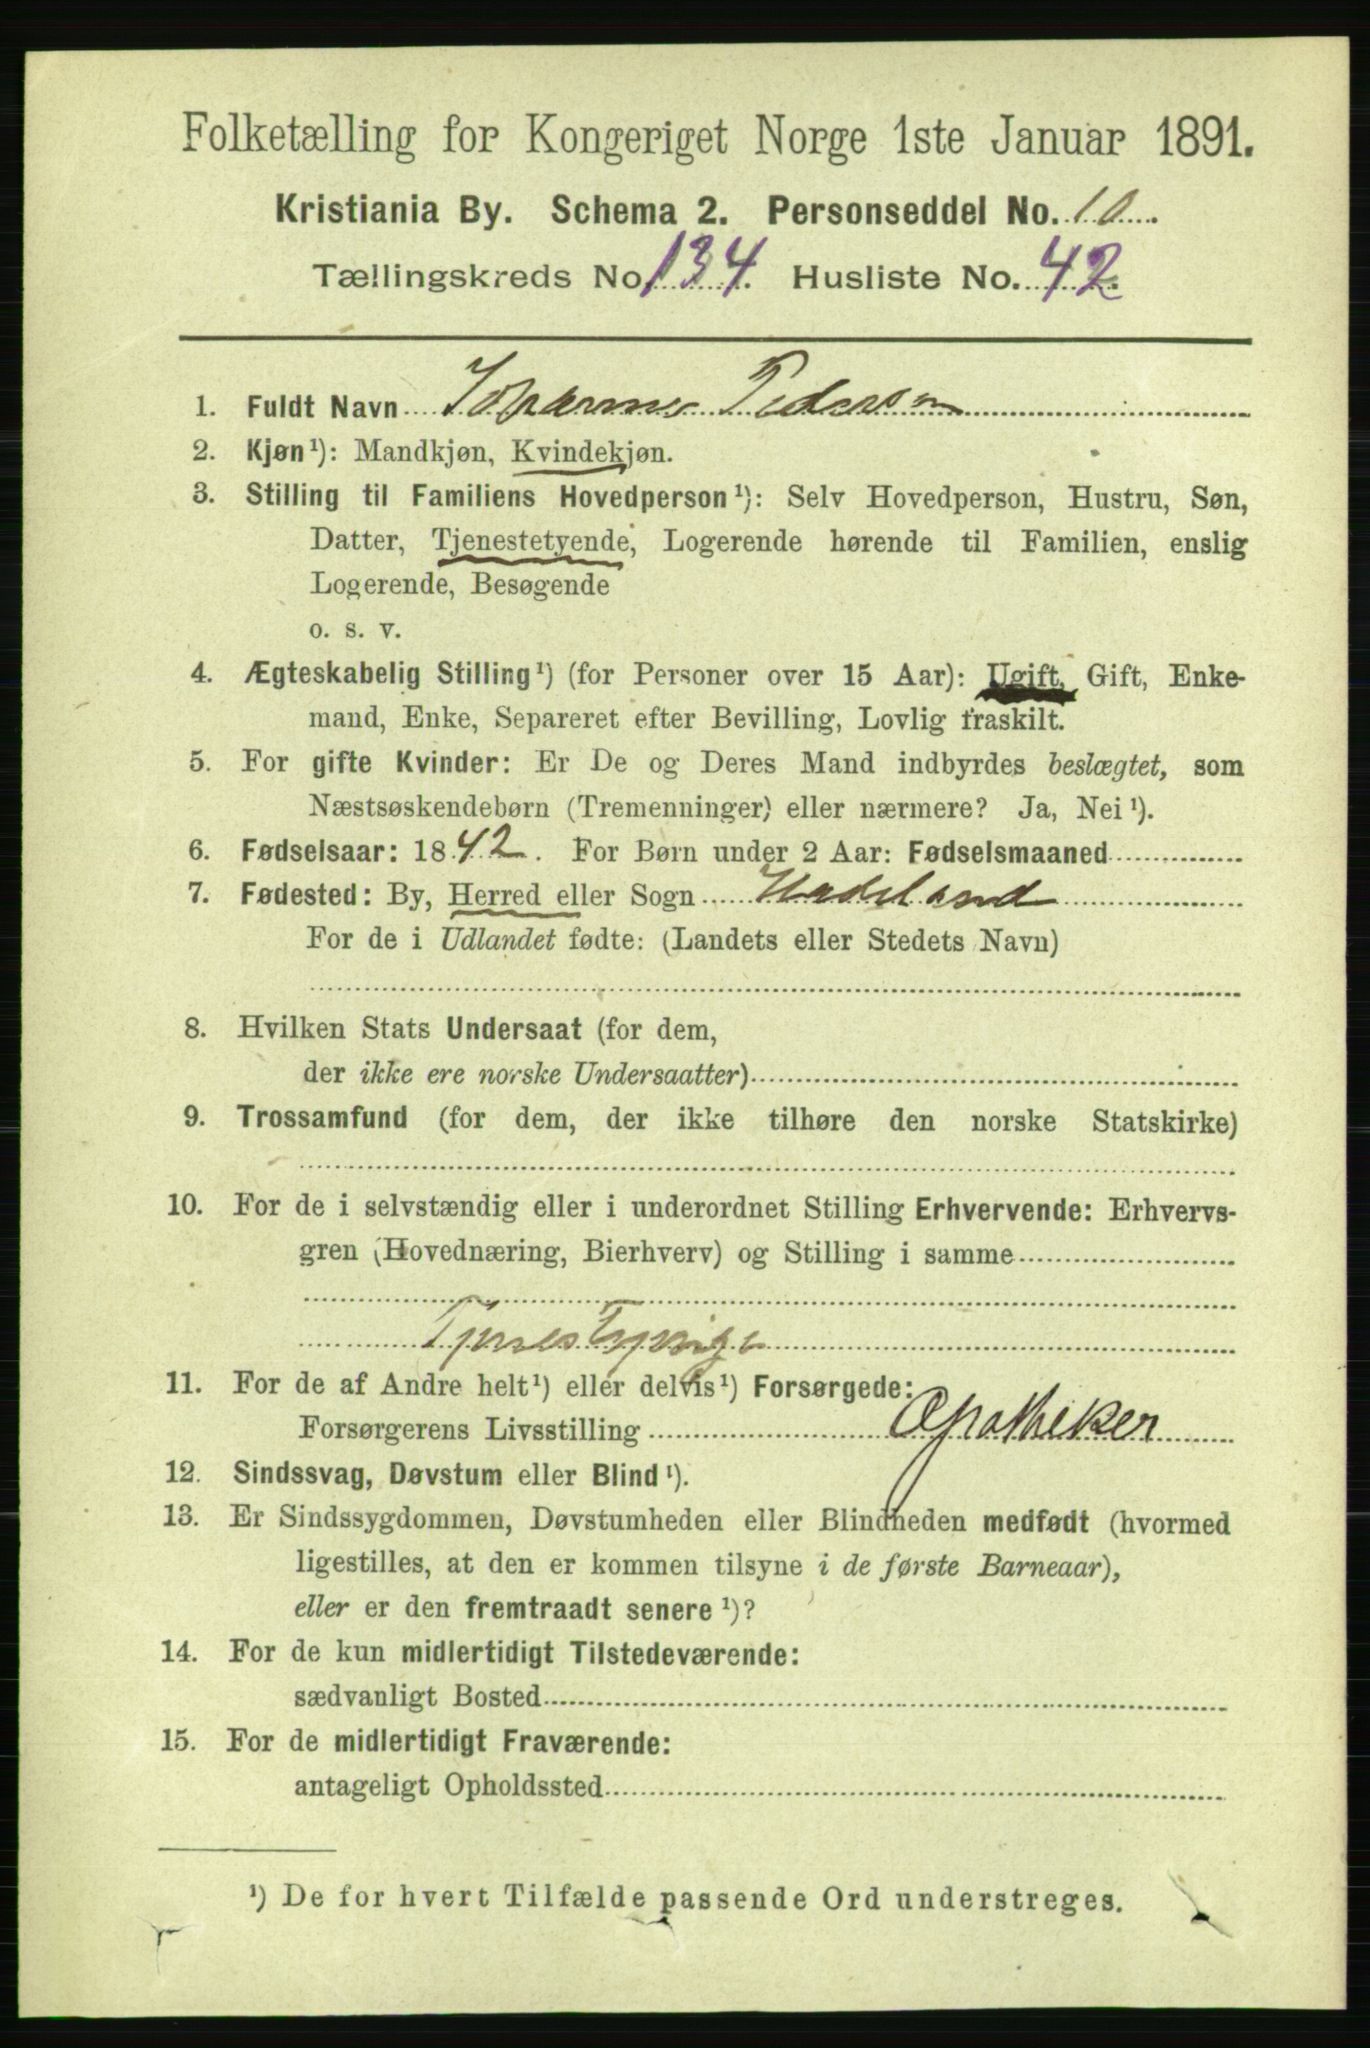 Folketælling for Kongeriget Norge 1ste Januar 1891.
Kristiania By. Schema 2. Personseddel No. 10.
Tællingskreds No. 134. Husliste No. 42.
1. Fuldt Navn Johanne Pedersen
2. Kjøn¹): Mandkjøn, Kvindekjøn.
3. Stilling til Familiens Hovedperson¹): Selv Hovedperson, Hustru, Søn,
Datter, Tjenestetyende, Logerende hørende til Familien, enslig
Logerende, Besøgende
o. s. v.
4. Ægteskabelig Stilling¹) (for Personer over 15 Aar): Ugift, Gift, Enke-
mand, Enke, Separeret efter Bevilling, Lovlig fraskilt.
5. For gifte Kvinder: Er De og Deres Mand indbyrdes beslægtet, som
Næstsøskendebørn (Tremenninger) eller nærmere? Ja, Nei¹).
6. Fødselsaar: 1842. For Børn under 2 Aar: Fødselsmaaned
7. Fødested: By, Herred eller Sogn Hadeland
For de i Udlandet fødte: (Landets eller Stedets Navn)
8. Hvilken Stats Undersaat (for dem,
der ikke ere norske Undersaatter)
9. Trossamfund (for dem, der ikke tilhøre den norske Statskirke)
10. For de i selvstændig eller i underordnet Stilling Erhvervende: Erhvervs-
gren (Hovednæring, Bierhverv) og Stilling i samme
Tjenestepige
11. For de af Andre helt¹) eller delvis¹) Forsørgede:
Forsørgerens Livsstilling Apotheker
12. Sindssvag, Døvstum eller Blind¹).
13. Er Sindssygdommen, Døvstumheden eller Blindheden medfødt (hvormed
ligestilles, at den er kommen tilsyne i de første Barneaar),
eller er den fremtraadt senere¹)?
14. For de kun midlertidigt Tilstedeværende:
sædvanligt Bosted
15. For de midlertidigt Fraværende:
antageligt Opholdssted
¹) De for hvert Tilfælde passende Ord understreges.